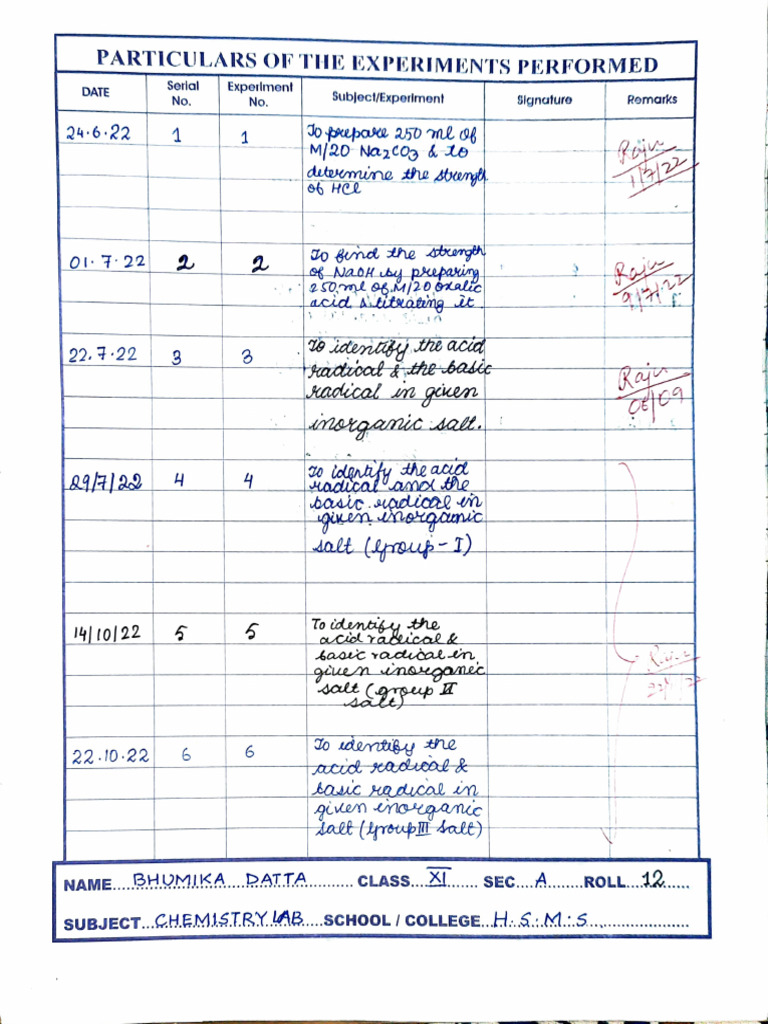 PARTICULARS OF THE EXPERIMENTS PERFORMED
DATE Serial No. Experiment No. Subject/Experiment Signature Remarks
24.6.22 1 1 To prepare 250 ml of
M/20 Na2CO3 & to
determine the strength
of HCl
Raju
1/7/22
01.7.22 2 2 To find the strength
of NaOH by preparing
250 ml of M/20 oxalic
acid & titrating it
Raju
9/7/22
22.7.22 3 3 To identify the acid
radical & the basic
radical in given
inorganic salt.
Raju
06/09
29/7/22 4 4 To identify the acid
radical and the
basic radical in
given inorganic
salt (Group-I)
14/10/22 5 5 To identify the
acid radical &
basic radical in
given inorganic
salt (group II
salt)
22.10.22 6 6 To identify the
acid radical &
basic radical in
given inorganic
salt (Group III salt)
NAME BHUMIKA DATTA CLASS XI SEC A ROLL 12
SUBJECT CHEMISTRY LAB SCHOOL / COLLEGE H.S.M.S